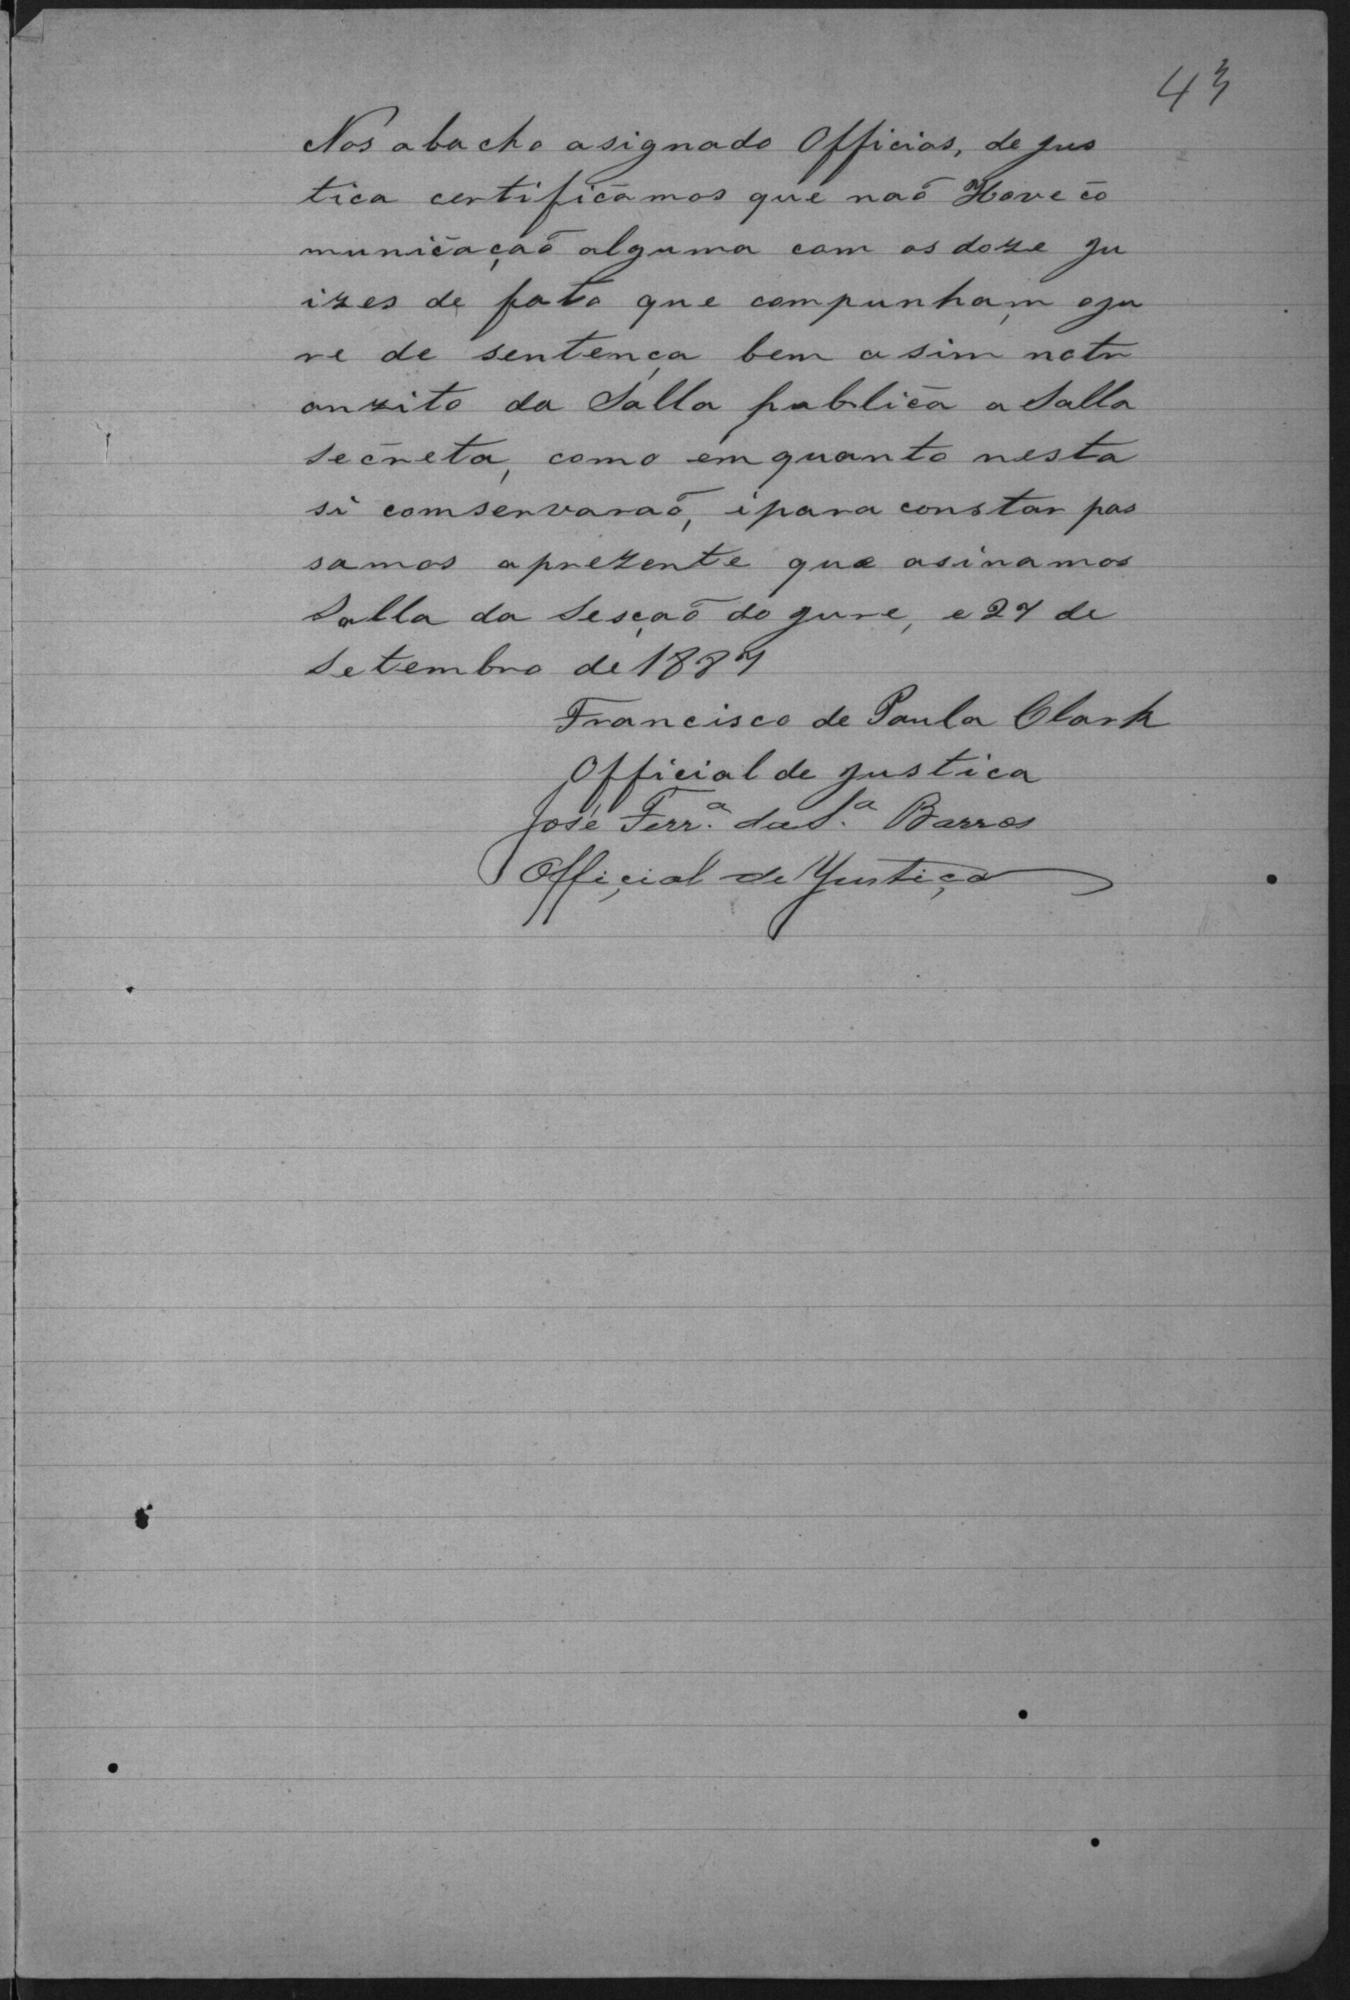 43
Nos abacho asignado Officias, de jus
tica certificamos que naõ Hove co
municaçaõ alguma com os doze ju
izes de fato que compunham oju
re de sentença bem asim notr
anzito da Salla publica a Salla
secreta, como em quanto nesta
si comservaraõ, ipara constar pas
samos aprezente que asinamos
Salla da Sesçaõ do jure, e 27 de
Setembro de 1887
Francisco de Paula Clark
Official de justica
José Ferr.ª da S.ª Barros
Official de Justiça